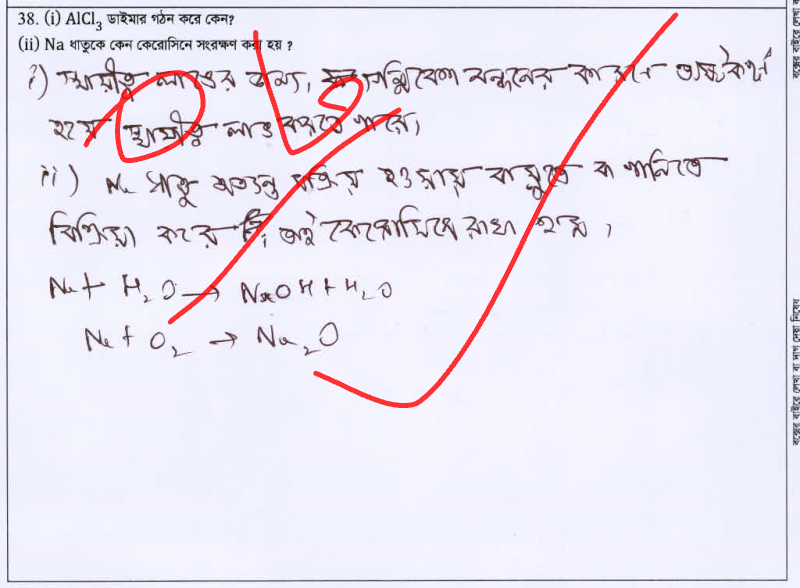 38. (i) AlCl3 ডাইমার গঠন করে কেন?
(ii) Na ধাতুকে কেন কেরোসিনে সংরক্ষণ করা হয় ?
i) স্থায়ীত্ব লাভের জন্য, সন্নিবেশ বন্ধনের কারনে অষ্টকপূর্ণ
হয়ে স্থায়ীত্ব লাভ করতে পারে।
ii) Na ধাতু অত্যন্ত সক্রিয় হওয়ায় বায়ুতে বা পানিতে
বিক্রিয়া করে। তাই কেরোসিনে রাখা হয়।
Na + H2O → NaOH + H2O
Na + O2 → Na2O
বক্সের বাইরে লেখা বা দাগ দেয়া নিষেধ
বক্সের বাইরে লেখা